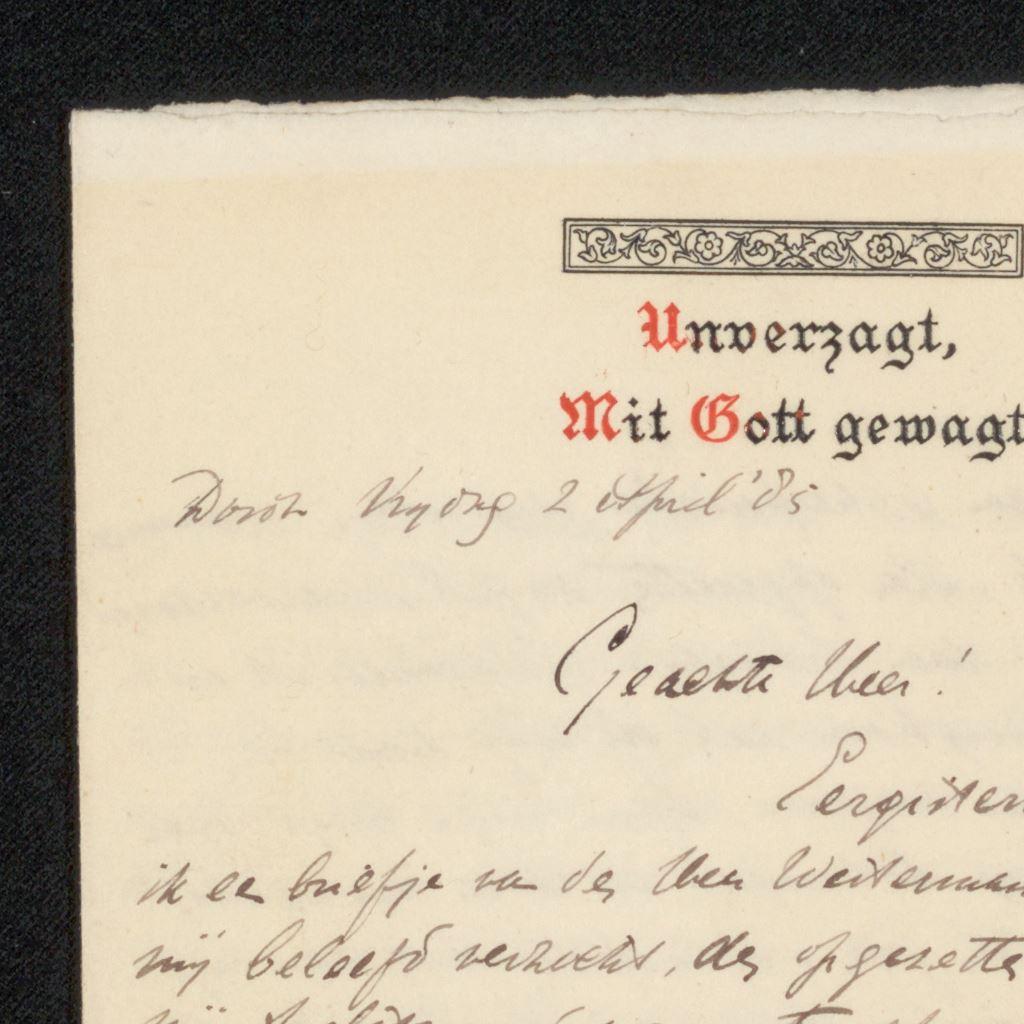 Unverzagt,
Mit Gott gewagt
Dordt Vrydag 2 April '85
Geachte Heer!
Eergister
ik een briefje van den Heer Westerman
mij beleefd verzocht, den opgezette